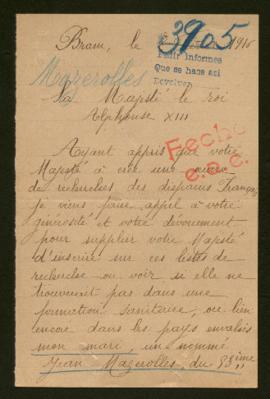 Bram, le 1916
3905
Pedir informes
Que se haga asi
Devolver
Mazerolles
Sa Majesté le roi
Alphonse XIII
Fecho
Ayant appris que votre
Majesté a créé une
de recherches des disparus Français
je viens faire appel à votre
générosité et votre dévouement
pour supplier votre Majesté
d'inscrire sur ces listes de
recherche ou voir si elle ne
trouverait pas dans une
formation sanitaire, ou bien
encore dans les pays envahis
mon mari, un nommé
Jean Mazerolles du